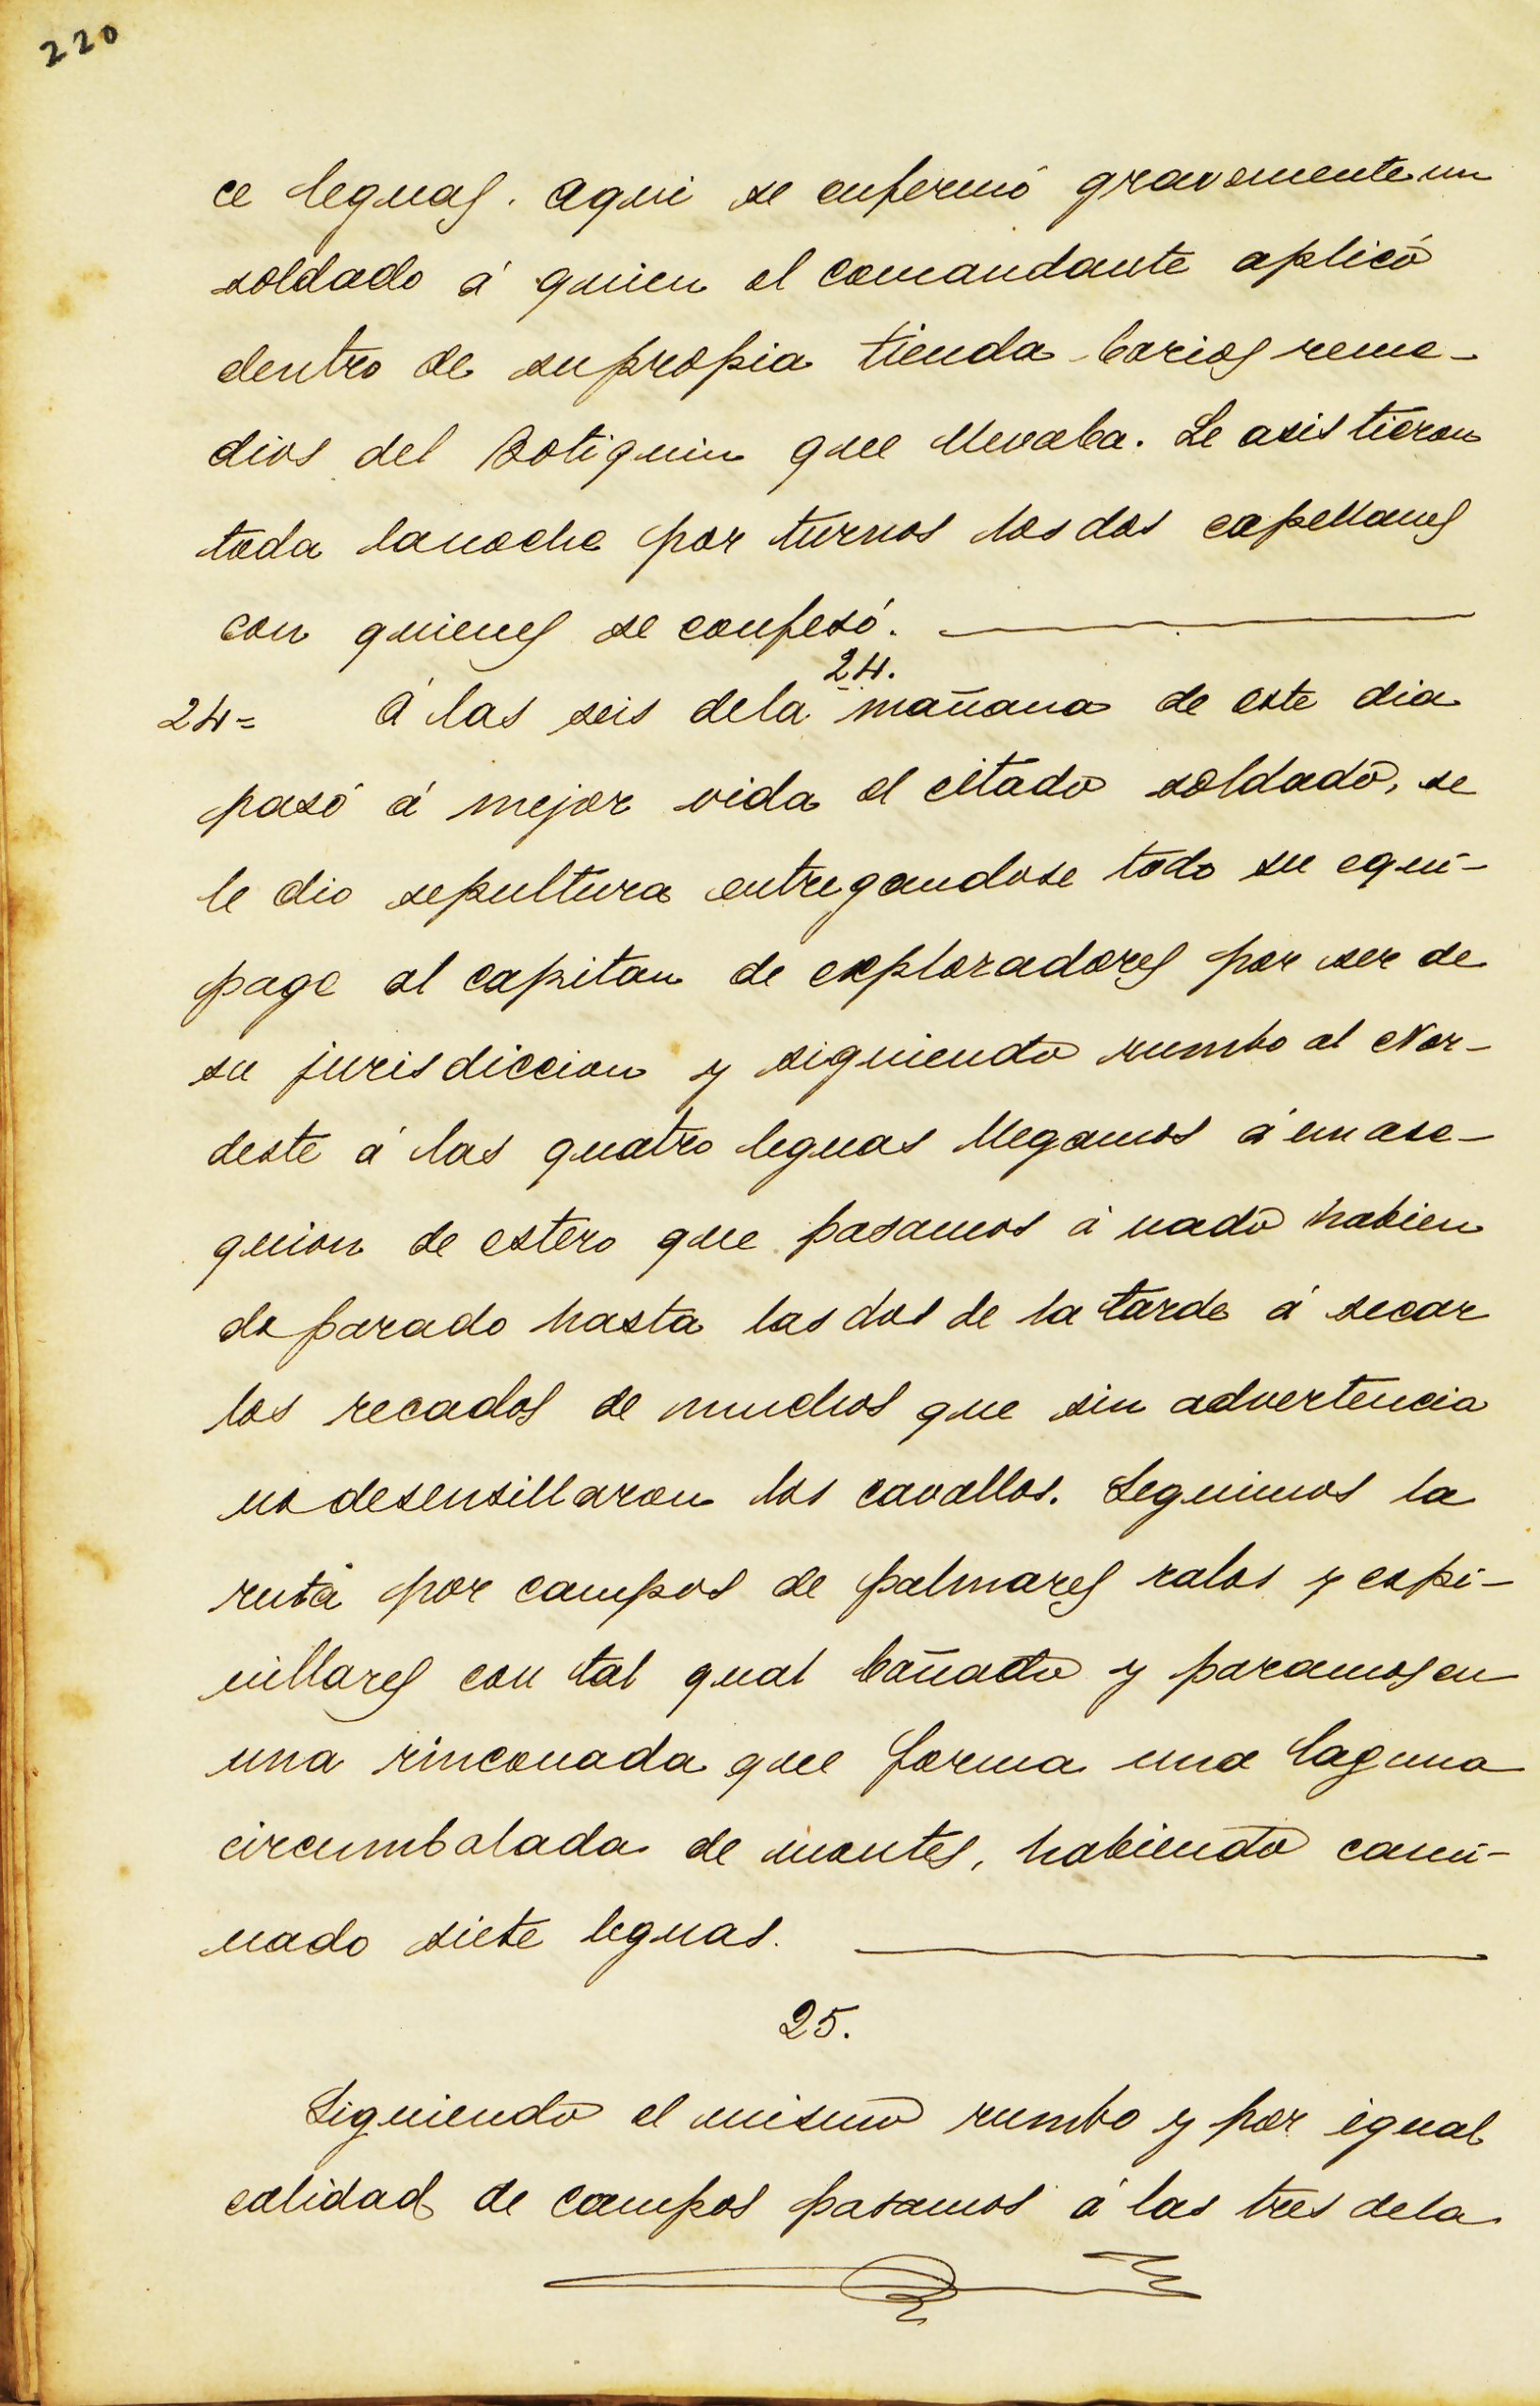 220
ce leguas. Aqui se enfermó gravemente un
soldado á quien el comandante aplicó
dentro de su propia tienda barios reme-
dios del Botiquin que llevaba. Le asistieron
toda la noche por turnos los dos capellanes
con quienes se confesó.
24.
24= Á las seis de la mañana de este dia
pasó á mejor vida el citado soldado, se
le dio sepultura entregandose todo su equi-
page al capitan de exploradores por ser de
su jurisdiccion y siguiendo rumbo al Nor-
deste á las quatro leguas llegamos á un ase-
quion de estero que pasamos á nado habien
do parado hasta las dos de la tarde á secar
los recados de muchos que sin advertencia
no desensillaron los cavallos. Seguimos la
ruta por campos de palmares ralos y espi-
nillares con tal qual bañado y paramos en
una rinconada que forma una laguna
circumbalada de montes, habiendo cami-
nado siete leguas.
25.
Siguiendo el mismo rumbo y por igual
calidad de campos pasamos á las tres de la